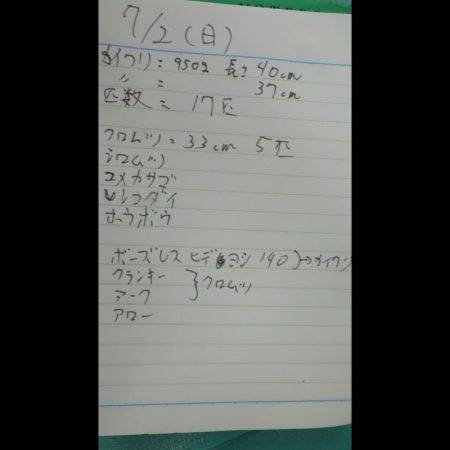 7/2(日)
オイワリ:950g 長さ40cm
〃 = 37cm
匹数 = 17匹
クロムツ=33cm 5匹
シロムツ
ユメカサゴ
レンコダイ
ホウボウ
ボーズレス ヒデヨシ 190 }→オイワリ
クランキー }クロムツ
アーク
アロー